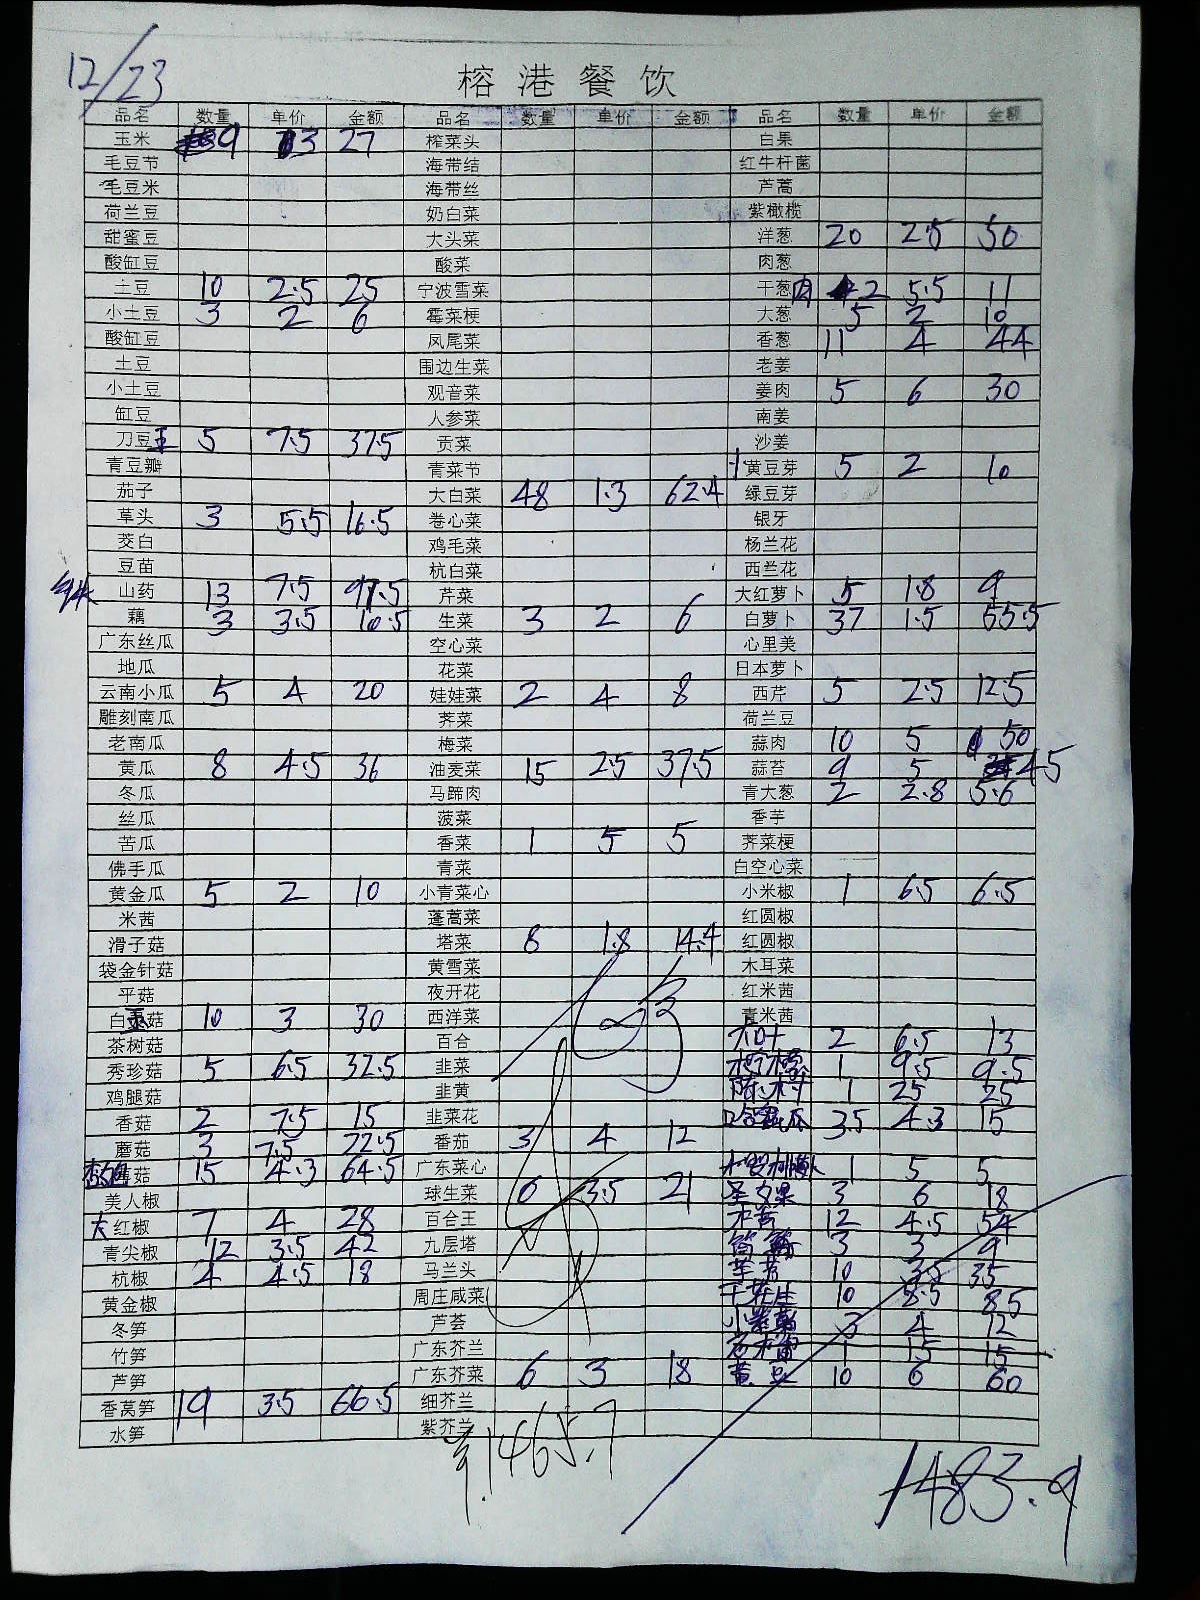 12/23
榕港餐饮
品名 数量 单价 金额 品名 数量 单价 金额 品名 数量 单价 金额
玉米 9 3 27 榨菜头 白果
毛豆节 海带结 红牛杆菌
毛豆米 海带丝 芦蒿
荷兰豆 奶白菜 紫橄榄
甜蜜豆 大头菜 洋葱 20 2.5 50
酸缸豆 酸菜 肉葱
土豆 10 2.5 25 宁波雪菜 干葱肉 2 5.5 11
小土豆 3 2 6 霉菜梗 大葱 5 2 10
酸缸豆 凤尾菜 香葱 11 4 44
土豆 围边生菜 老姜
小土豆 观音菜 姜肉 5 6 30
缸豆 人参菜 南姜
刀豆王 5 7.5 37.5 贡菜 沙姜
青豆瓣 青菜节 黄豆芽 5 2 10
茄子 大白菜 48 1.3 62.4 绿豆芽
草头 3 5.5 16.5 卷心菜 银牙
茭白 鸡毛菜 杨兰花
豆苗 杭白菜 西兰花
山药 13 7.5 97.5 芹菜 大红萝卜 5 1.8 9
藕 3 3.5 10.5 生菜 3 2 6 白萝卜 37 1.5 55.5
广东丝瓜 空心菜 心里美
地瓜 花菜 日本萝卜
云南小瓜 5 4 20 娃娃菜 2 4 8 西芹 5 2.5 12.5
雕刻南瓜 荠菜 荷兰豆
老南瓜 梅菜 蒜肉 10 5 50
黄瓜 8 4.5 36 油麦菜 15 2.5 37.5 蒜苔 9 5 45
冬瓜 马蹄肉 青大葱 2 2.8 5.6
丝瓜 菠菜 香芋
苦瓜 香菜 1 5 5 荠菜梗
佛手瓜 青菜 白空心菜
黄金瓜 5 2 10 小青菜心 小米椒 1 6.5 6.5
米茜 蓬蒿菜 红圆椒
滑子菇 塔菜 8 1.8 14.4 红圆椒
袋金针菇 黄雪菜 木耳菜
平菇 夜开花 红米茜
白灵菇 10 3 30 西洋菜 青米茜
茶树菇 百合 2 6.5 13
秀珍菇 5 6.5 32.5 韭菜 柠檬 1 9.5 9.5
鸡腿菇 韭黄 1 25 25
香菇 2 7.5 15 韭菜花 哈密瓜 3.5 4.3 15
蘑菇 3 7.5 22.5 番茄 3 4 12
菇 15 4.3 64.5 广东菜心 1 5 5
美人椒 球生菜 6 3.5 21 圣女果 3 6 18
大红椒 7 4 28 百合王 12 4.5 54
青尖椒 12 3.5 42 九层塔 3 3 9
杭椒 4 4.5 18 马兰头 10 3.5 35
黄金椒 周庄咸菜 10 8.5 85
冬笋 芦荟 3 4 12
竹笋 广东芥兰 1 15 15
芦笋 广东芥菜 6 3 18 黄豆 10 6 60
香莴笋 19 3.5 66.5 细芥兰
水笋 紫芥兰
1465.7
1483.9